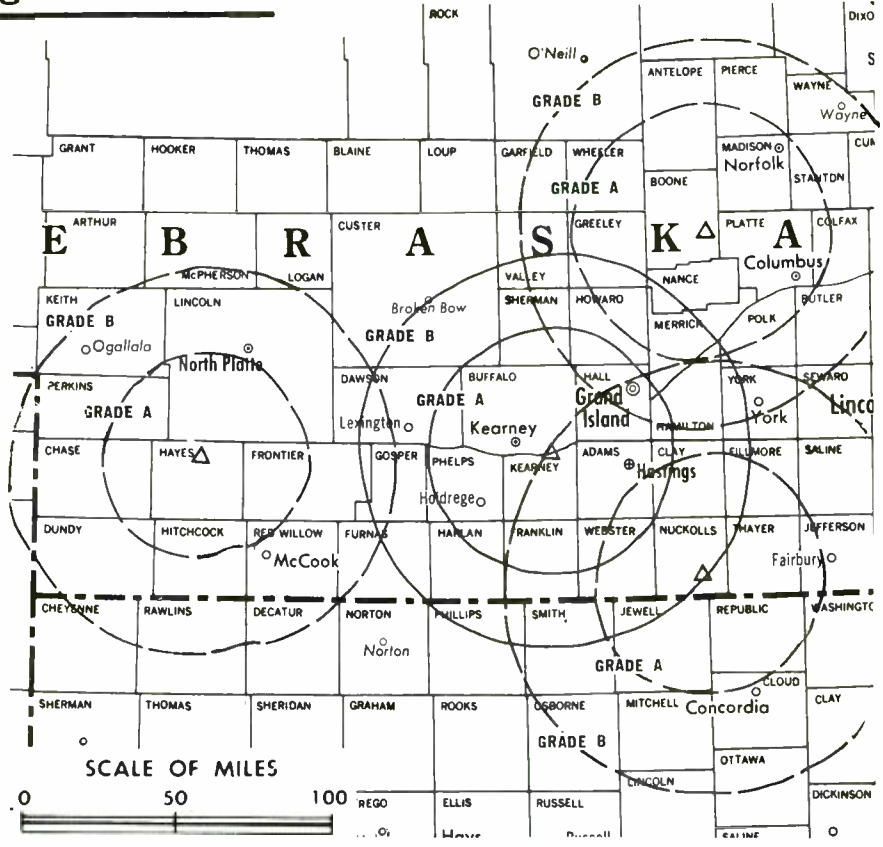 ROCK
DIXO
O'Neill
ANTELOPE PIERCE
WAYNE
GRADE B
Wayne
GRANT HOOKER THOMAS BLAINE LOUP GARFIELD WHEELER MADISON CUM
Norfolk
GRADE A BOONE STANTON
ARTHUR CUSTER GREELEY PLATTE COLFAX
E B R A S K A
McPHERSON LOGAN VALLEY NANCE Columbus
KEITH LINCOLN Broken Bow SHERMAN HOWARD BUTLER
GRADE B MERRICK POLK
GRADE B
Ogallala North Platte
PERKINS DAWSON BUFFALO HALL YORK SEWARD
GRADE A GRADE A Grand Island York Linco
Lexington Kearney HAMILTON
CHASE HAYES FRONTIER GOSPER PHELPS KEARNEY ADAMS CLAY FILLMORE SALINE
Hastings
Holdrege
DUNDY HITCHCOCK RED WILLOW FURNAS HARLAN RANKLIN WEBSTER NUCKOLLS THAYER JEFFERSON
McCook Fairbury
CHEYENNE RAWLINS DECATUR NORTON PHILLIPS SMITH JEWELL REPUBLIC WASHINGTO
Norton
GRADE A
CLOUD
SHERMAN THOMAS SHERIDAN GRAHAM ROOKS OSBORNE MITCHELL Concordia CLAY
GRADE B
OTTAWA
SCALE OF MILES
LINCOLN
0 50 100
REGO ELLIS RUSSELL DICKINSON
Hays Russell SALINE